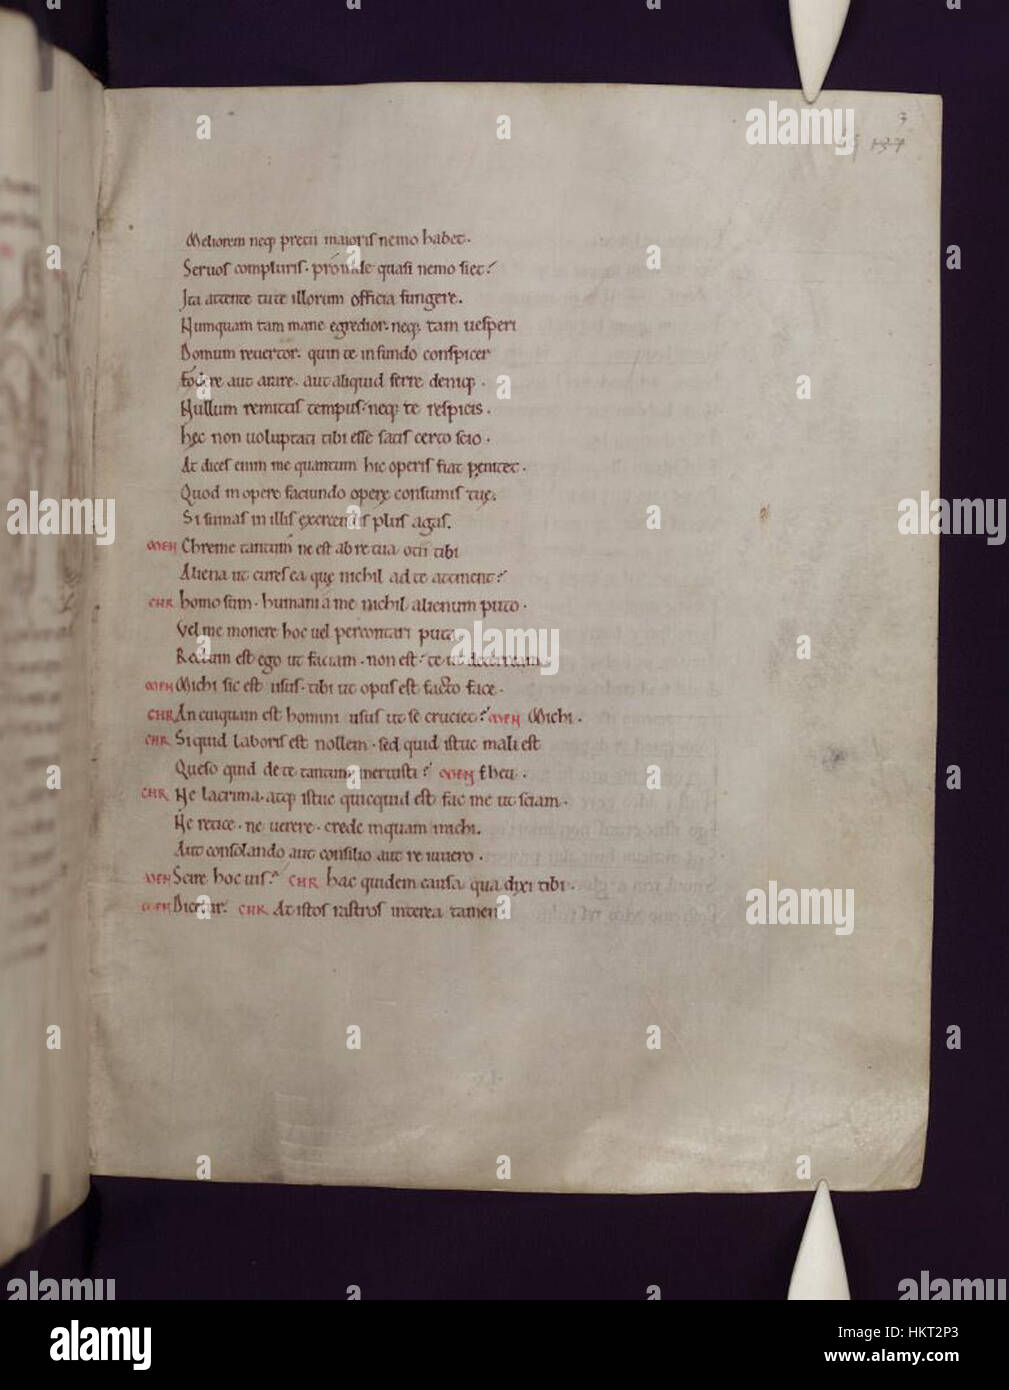 3
137
Meliorem neq; precii maioris nemo habet.
Seruos compluris. proinde quasi nemo siet?
Ita attente tute illorum officia fungere.
Numquam tam mane egredior. neq; tam uesperi
Domum reuertor. quin te in fundo conspicer
Fodere aut arare. aut aliquid ferre deniq;.
Nullum remittis tempus. neq; te respicis.
Hęc non uoluptati tibi esse satis certo scio.
At dices enim me quantum hic operis fiat penitet.
Quod in opere faciundo operę consumis tuę.
Si sumas in illis exercendis plus agas.
MEN Chreme tantum ne est ab re tua otii tibi
Aliena ut cures ea quę nichil ad te attinent?
CHR homo sum. humani a me nichil alienum puto.
Vel me monere hoc uel percontari puta
Rectum est ego ut faciam. non est? te ut deterream
MEN Michi sic est usus. tibi ut opus est facto face.
CHR An cuiquam est homini usus ut se cruciet? MEN Michi.
CHR Siquid laboris est nollem. sed quid istuc mali est
Queso quid de te tantum meruisti? MEN Eheu.
CHR Ne lacrima. atq; istuc quicquid est fac me ut sciam.
Ne retice. ne uerere. crede inquam michi.
Aut consolando aut consilio aut re iuuero.
MEN Scire hoc uis? CHR hac quidem causa qua dixi tibi.
MEN Dicetur. CHR At istos rastros interea tamen
alamy
a
alamy
Image ID: HKT2P3
www.alamy.com